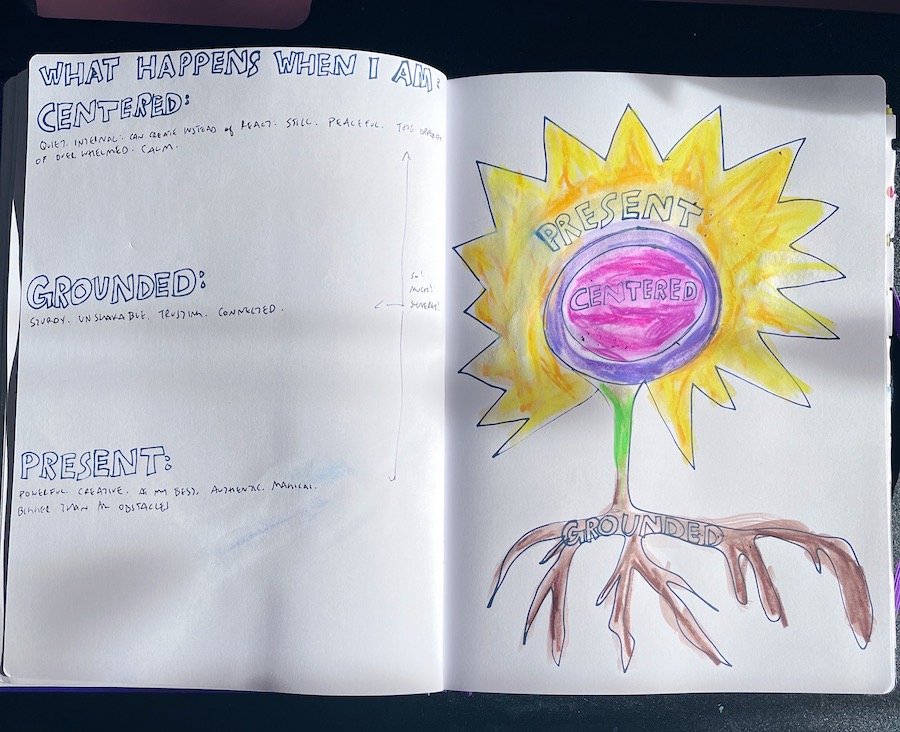 WHAT HAPPENS WHEN I AM:
CENTERED:
QUIET. INTERNAL. CAN CREATE INSTEAD OF REACT. STILL. PEACEFUL.
OF OVERWHELMED. CALM.
GROUNDED:
STURDY. UNSHAKABLE. TRUSTING. CONNECTED.
SO!
MUCH!
SYNERGY!
PRESENT:
POWERFUL. CREATIVE. AT MY BEST. AUTHENTIC. MAGICAL.
BIGGER THAN MY OBSTACLES
PRESENT
CENTERED
GROUNDED